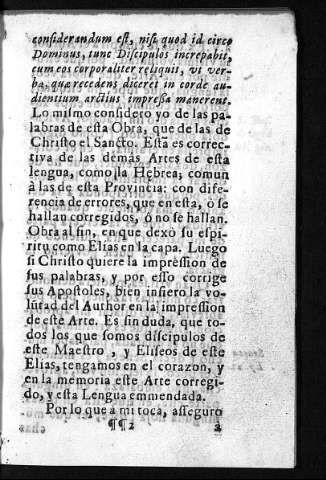 considerandum est, nisi quod id circo
Dominus, tunc Discipulos increpabit,
cum eos corporaliter reliquit, vt ver-
ba, quæ recedens diceret in corde au-
dientium arctius impressa manerent.
Lo mismo considero yo de las pa-
labras de esta Obra, que de las de
Christo el Sancto. Esta es correc-
tiva de las demàs Artes de esta
lengua, como la Hebrea, comun
à las de esta Provincia: con dife-
rencia de errores, que en esta, ó se
hallan corregidos, ó no se hallan.
Obra al fin, en que dexò su espi-
ritu como Elias en la capa. Luego
si Christo quiere la impression de
sus palabras, y por esso corrige
sus Apostoles, bien infiero la vo-
lũtad del Author en la impression
de este Arte. Es sin duda, que to-
dos los que somos discipulos de
este Maestro, y Eliseos de este
Elias, tengamos en el corazon, y
en la memoria este Arte corregi-
do, y esta Lengua emmendada.
Por lo que a mi toca, asseguro
¶¶2